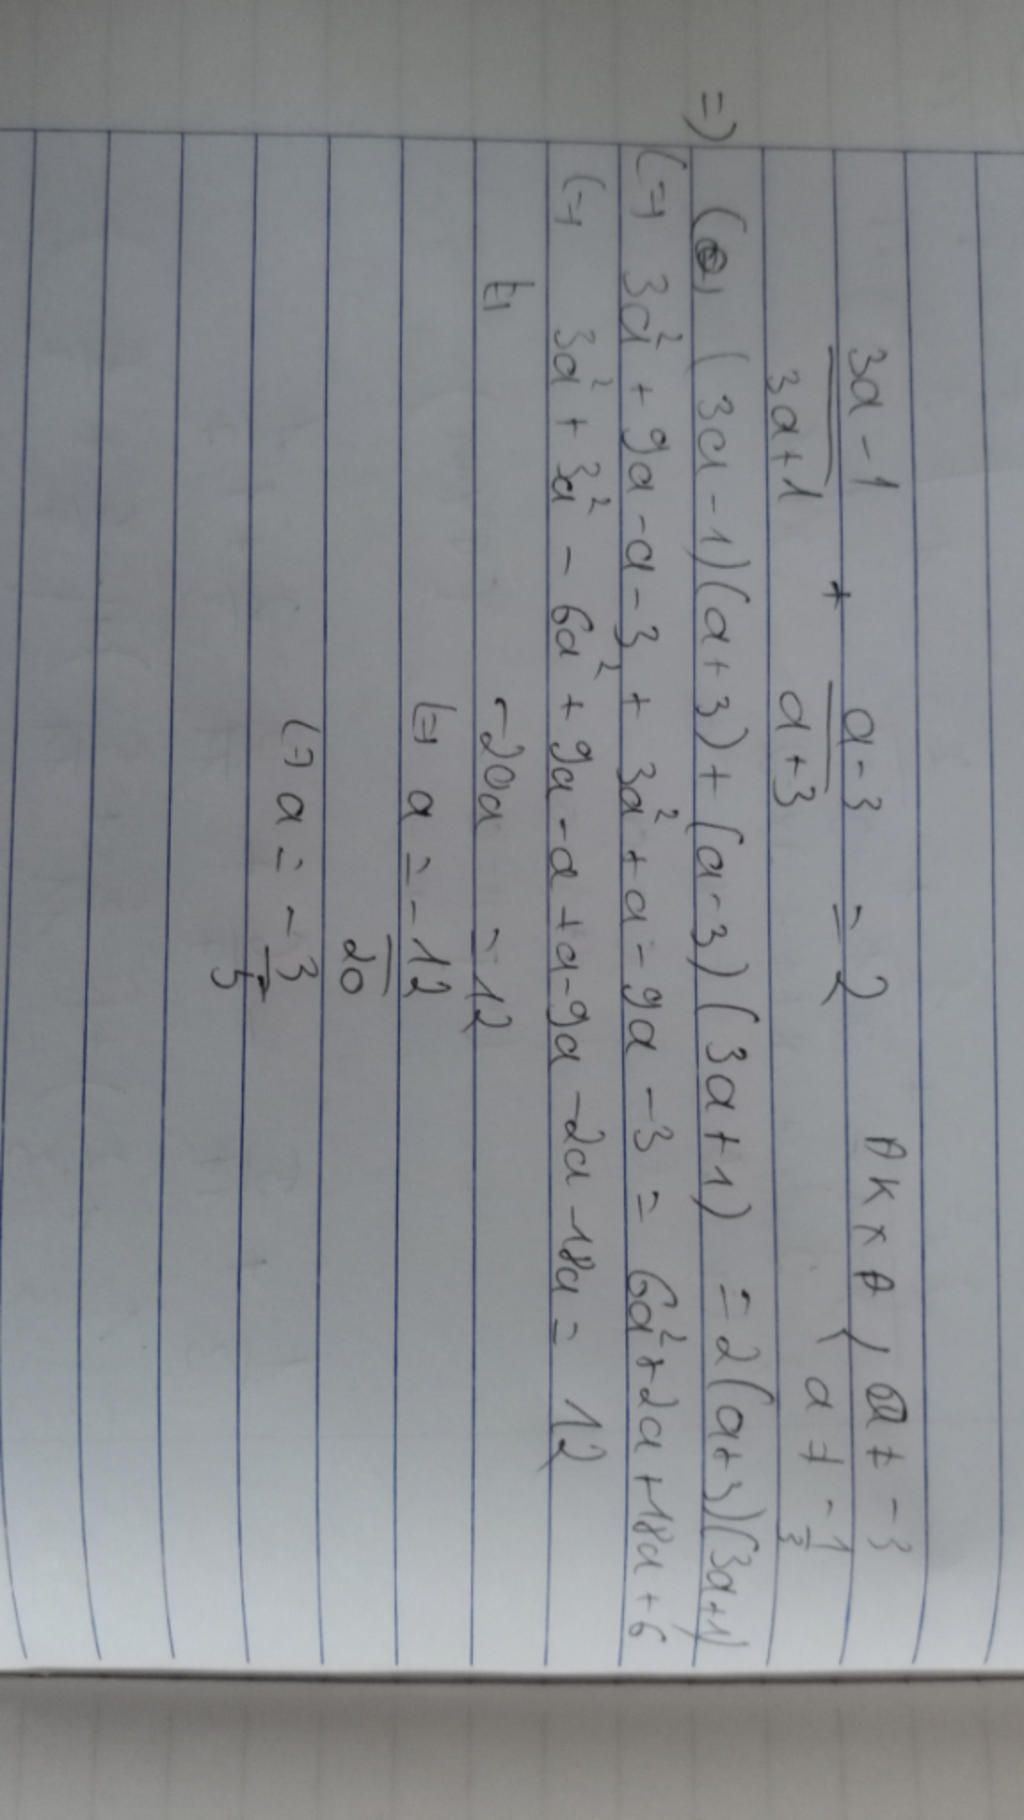 3a-1/3a+1 + a-3/a+3 = 2 ĐKXĐ { a ≠ -3
a ≠ -1/3
=> (=) (3a-1)(a+3)+(a-3)(3a+1) = 2(a+3)(3a+1)
(=) 3a²+9a-a-3 + 3a²+a-9a-3 = 6a²+2a+18a+6
(=) 3a²+3a²-6a²+9a-a+a-9a-2a-18a = 12
(=) -20a = 12
(=) a = -12/20
(=) a = -3/5